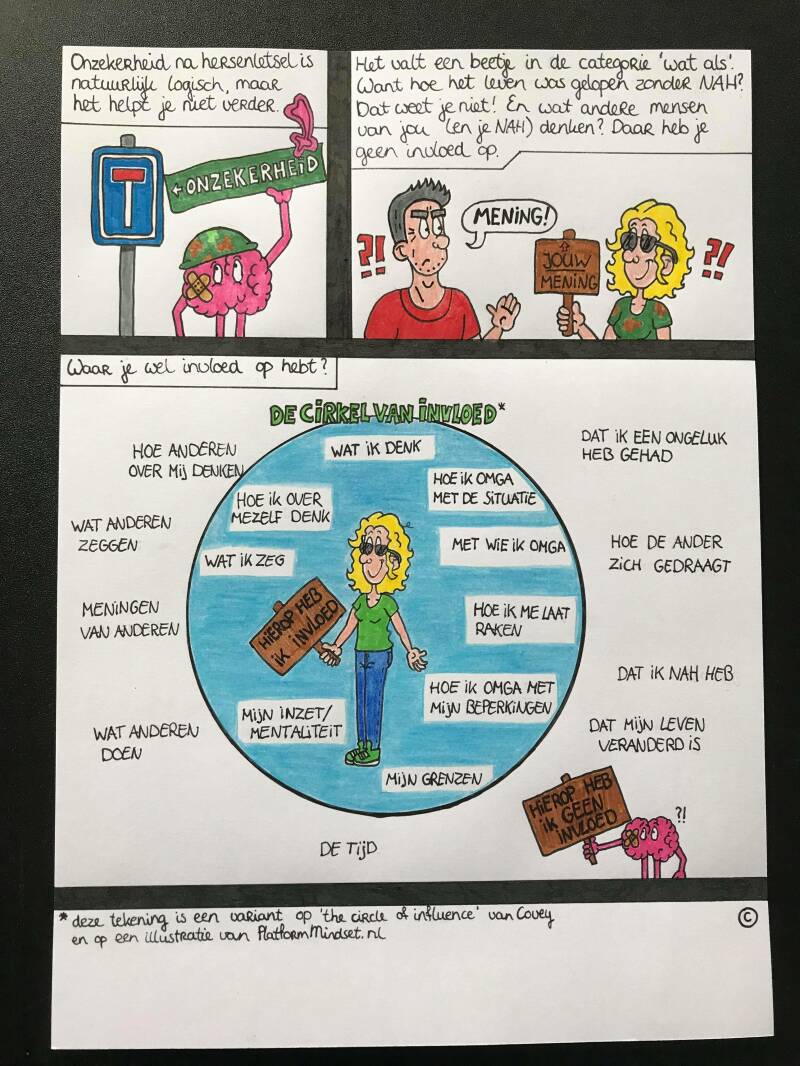 Onzekerheid na hersenletsel is
natuurlijk logisch, maar
het helpt je niet verder.
←ONZEKERHEID
Het valt een beetje in de categorie 'wat als'.
Want hoe het leven was gelopen zonder NAH?
Dat weet je niet! En wat andere mensen
van jou (en je NAH) denken? Daar heb je
geen invloed op.
?!
MENING!
JOUW
MENING
?!
Waar je wel invloed op hebt?
DE CIRKEL VAN INVLOED*
WAT IK DENK
HOE ANDEREN
OVER MIJ DENKEN
DAT IK EEN ONGELUK
HEB GEHAD
HOE IK OMGA
MET DE SITUATIE
HOE IK OVER
MEZELF DENK
WAT ANDEREN
ZEGGEN
MET WIE IK OMGA
HOE DE ANDER
ZICH GEDRAAGT
WAT IK ZEG
HIEROP HEB
IK INVLOED
MENINGEN
VAN ANDEREN
HOE IK ME LAAT
RAKEN
DAT IK NAH HEB
HOE IK OMGA MET
MIJN BEPERKINGEN
MIJN INZET/
MENTALITEIT
WAT ANDEREN
DOEN
DAT MIJN LEVEN
VERANDERD IS
MIJN GRENZEN
HIEROP HEB
IK GEEN
INVLOED
?!
DE TIJD
* deze tekening is een variant op 'the circle of influence' van Covey
en op een illustratie van PlatformMindset.nl
©